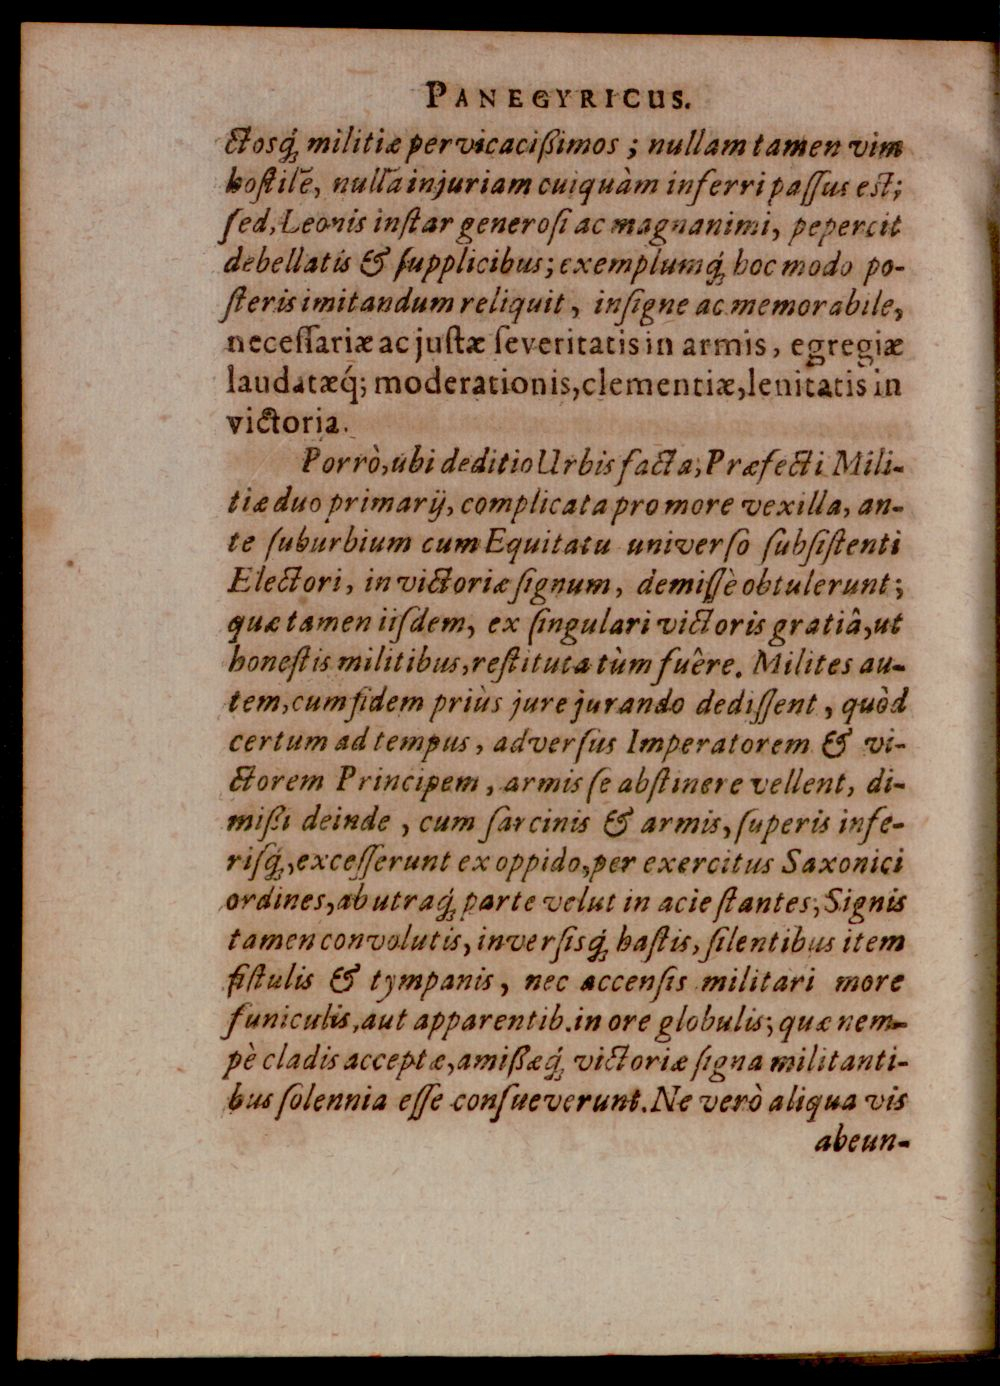 PANEGYRICUS.
ctosq́; militiæ pervicacißimos; nullam tamen vim
hoſtilẽ, nullã injuriam cuiquàm inferri paſſus est;
ſed, Leonis inſtar generoſi ac magnanimi, pepercit
debellatis & ſupplicibus; exemplumq́; hoc modo po-
ſteris imitandum reliquit, inſigne ac memorabile,
neceſſariæ ac juſtæ ſeveritatis in armis, egregiæ
laudatæq́; moderationis, clementiæ, lenitatis in
victoria.
Porrò, ubi deditio Urbis facta, Præfecti Mili-
tiæ duo primarij, complicata pro more vexilla, an-
te ſuburbium cum Equitatu univerſo ſubſiſtenti
Electori, in victoriæ ſignum, demiſſè obtulerunt;
quæ tamen iiſdem, ex ſingulari victoris gratiâ, ut
honeſtis militibus, reſtituta tùm fuêre. Milites au-
tem, cum fidem priùs jure jurando dediſſent, quòd
certum ad tempus, adverſus Imperatorem & vi-
ctorem Principem, armis ſe abſtinere vellent, di-
mißi deinde, cum ſarcinis & armis, ſuperis infe-
riſq́;, exceſſerunt ex oppido, per exercitus Saxonici
ordines, ab utraq́; parte velut in acie ſtantes; Signis
tamen convolutis, inverſisq́; haſtis, ſilentibus item
fiſtulis & tympanis, nec accenſis militari more
funiculis, aut apparentib. in ore globulis; quæ nem-
pè cladis acceptæ, amißæq́; victoriæ ſigna militanti-
bus ſolennia eſſe conſueverunt. Ne verò aliqua vis
abeun-